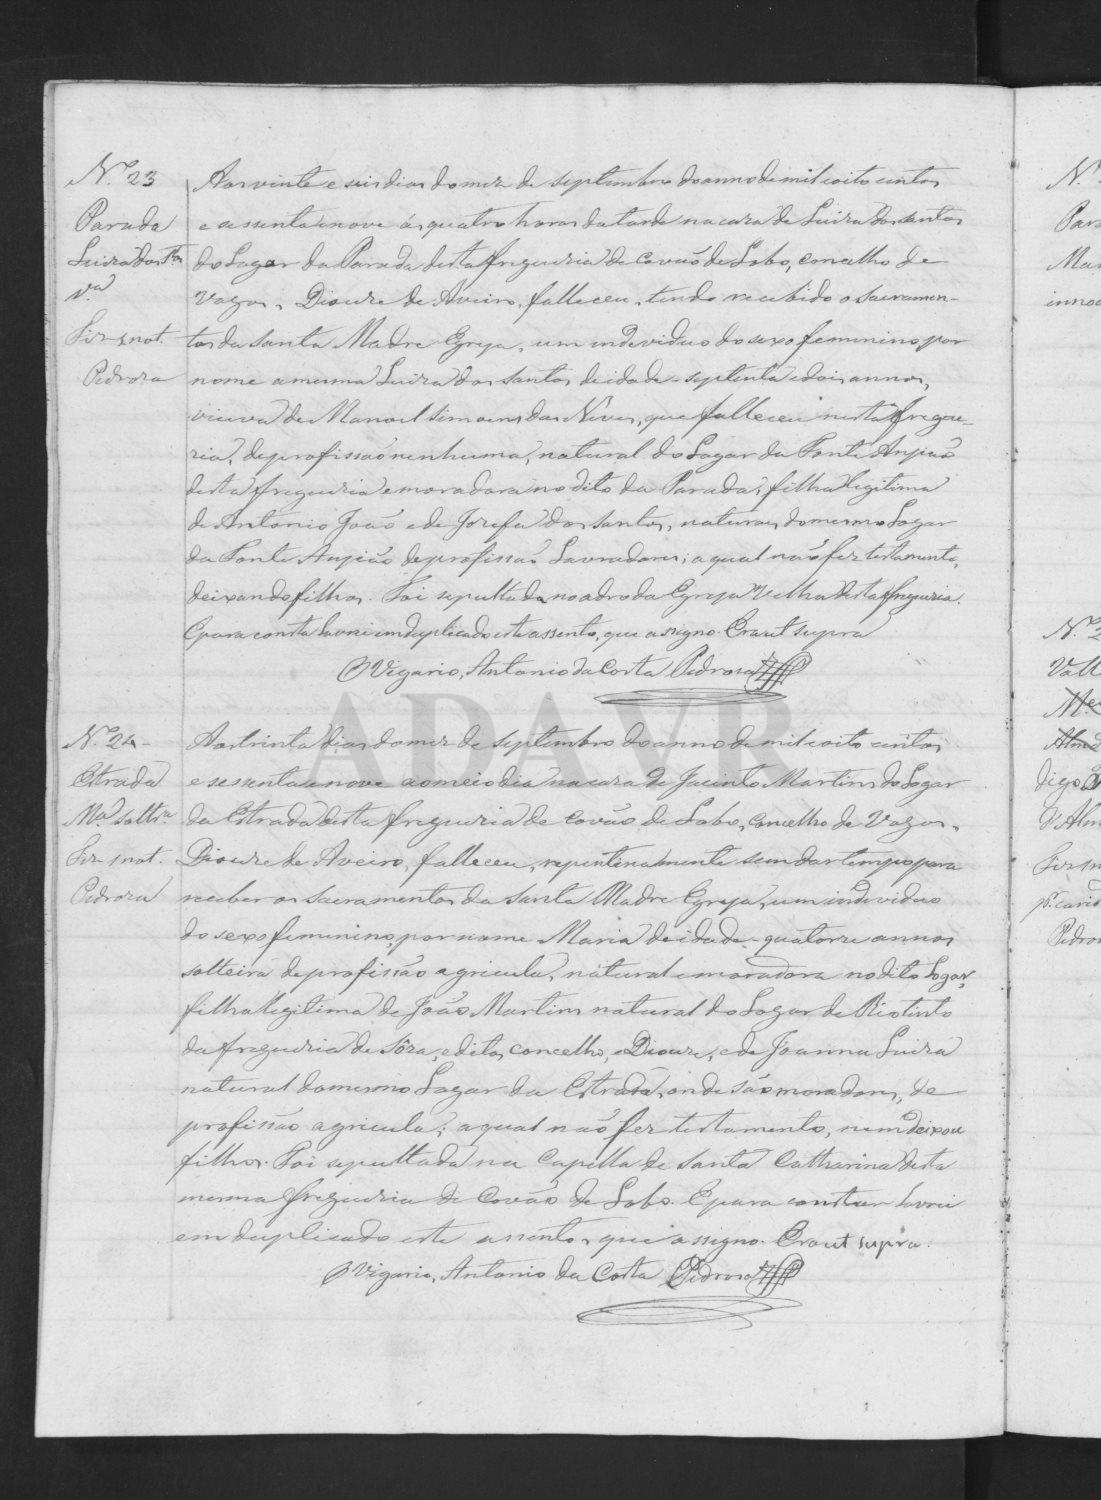 N.º 23
Parada
Luiza dos Stos
v.ª
Fiz-s not.
Pedroza
Aos vinte e seis dias do mez de septembro do anno de mil e oito centos
e sessenta e nove ás quatro horas da tarde na caza de Luiza dos santos
do Logar da Parada desta freguezia de Covão de Lobo, concelho de
Vagos, Diocese de Aveiro, falleceu, tendo recebido os sacramen-
tos da santa Madre Egreja, um individuo do sexo feminino por
nome a mesma Luiza dos santos de idade - septenta e dois annos,
viuva de Manoel simoens das Neves, que falleceu nesta fregue-
zia, de profissão nenhuma, natural do Logar da Fonte Anjião
desta freguezia e moradora no dito da Parada, filha legitima
de Antonio João e de Josefa dos santos, naturaes do mesmo Logar
da Fonte Anjião de profissão Lavradores; a qual não fez testamento,
deixando filhos. Foi sepultada no adro da Egreja velha desta freguezia.
E para constar lavrei em duplicado este assento, que assigno. Era ut supra
O Vigario, Antonio da Costa Pedroza
N.º 24-
Estrada
M.ª soltr.ª
Fiz- s not.
Pedroza
Aos trinta dias do mez de septembro do anno de mil e oito centos
e sessenta e nove ao meio dia na caza de Jacinto Martins do Logar
da Estrada desta freguezia de Covão de Lobo, Concelho de Vagos,
Diocese de Aveiro, falleceu, repentinamente sem dar tempo para
receber os sacramentos da santa Madre Egreja, um individuo
do sexo feminino, por nome Maria de idade - quatorze annos
solteira de profissão agricula, natural e moradora no dito Logar,
filha legitima de João Martins natural do Logar de Rio tinto
da freguezia de Sôza, e ditos concelho, e Diocese, e de Joanna Luiza
natural do mesmo Logar da Estrada, onde são moradores, de
profissão agricula; a qual não fez testamento, nem deixou
filhos. Foi sepultada na Capella de santa Catharina desta
mesma freguezia de Covão de Lobo. E para constar lavrei
em duplicado este assento, que assigno. Era ut supra.
O Vigario, Antonio da Costa Pedroza
ADAVR
N.º
Para
Mar
innoc
N.º 2
Vall
d'Alm
Pedro